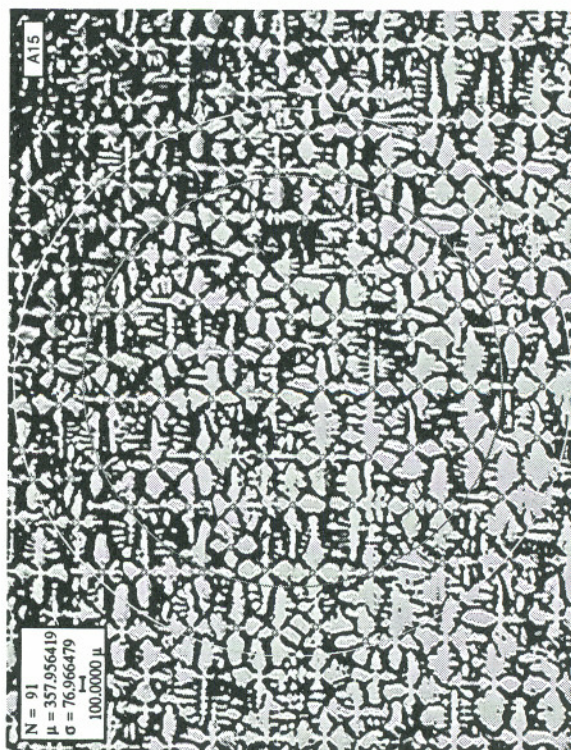 A15
N = 91
μ = 357.956419
σ = 76.966479
100.0000 μ